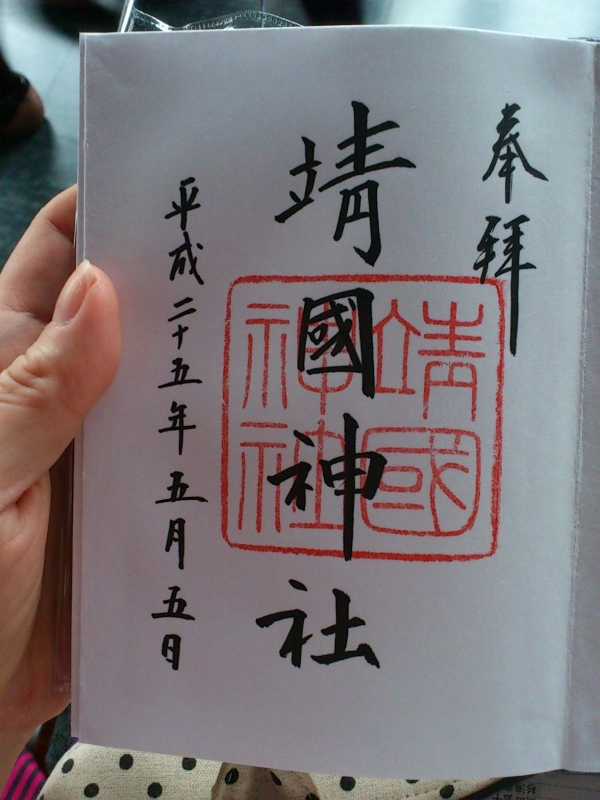 奉拝
靖國神社
靖國
神社
平成二十五年五月五日